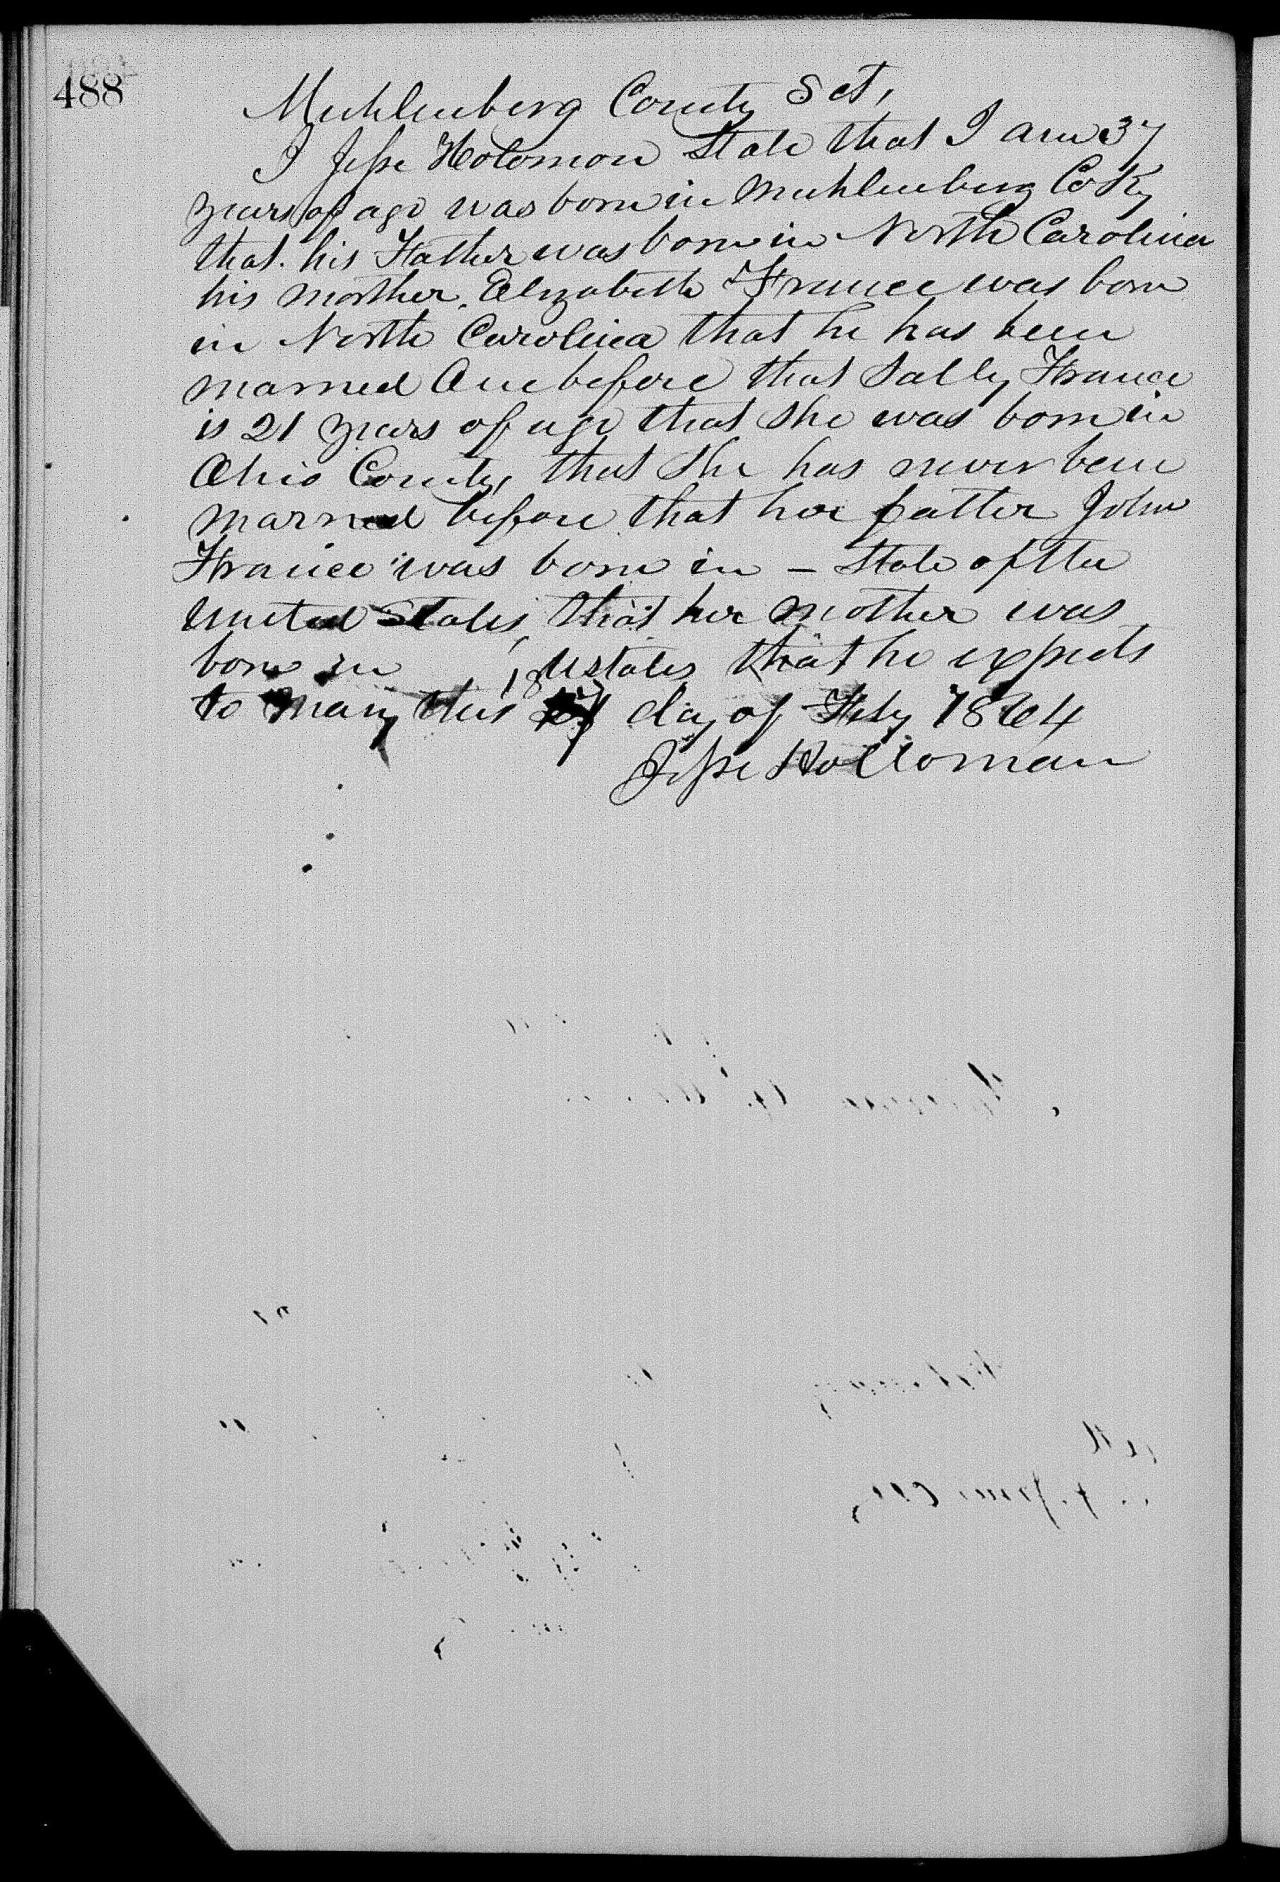 488
Muhlenberg County Sct,
I Jesse Holomon State that I am 37
years of age was born in Muhlenberg Co Ky
that his Father was born in North Carolina
his mother, Elizabeth France was born
in North Carolina that he has been
married One before that Sally France
is 21 years of age that she was born in
Ohio County, that she has never been
married before that her father John
France was born in – State of the
United States, that her mother was
born in Ustates that he expects
to marry this 18 day of Feby 1864
Jesse Holloman